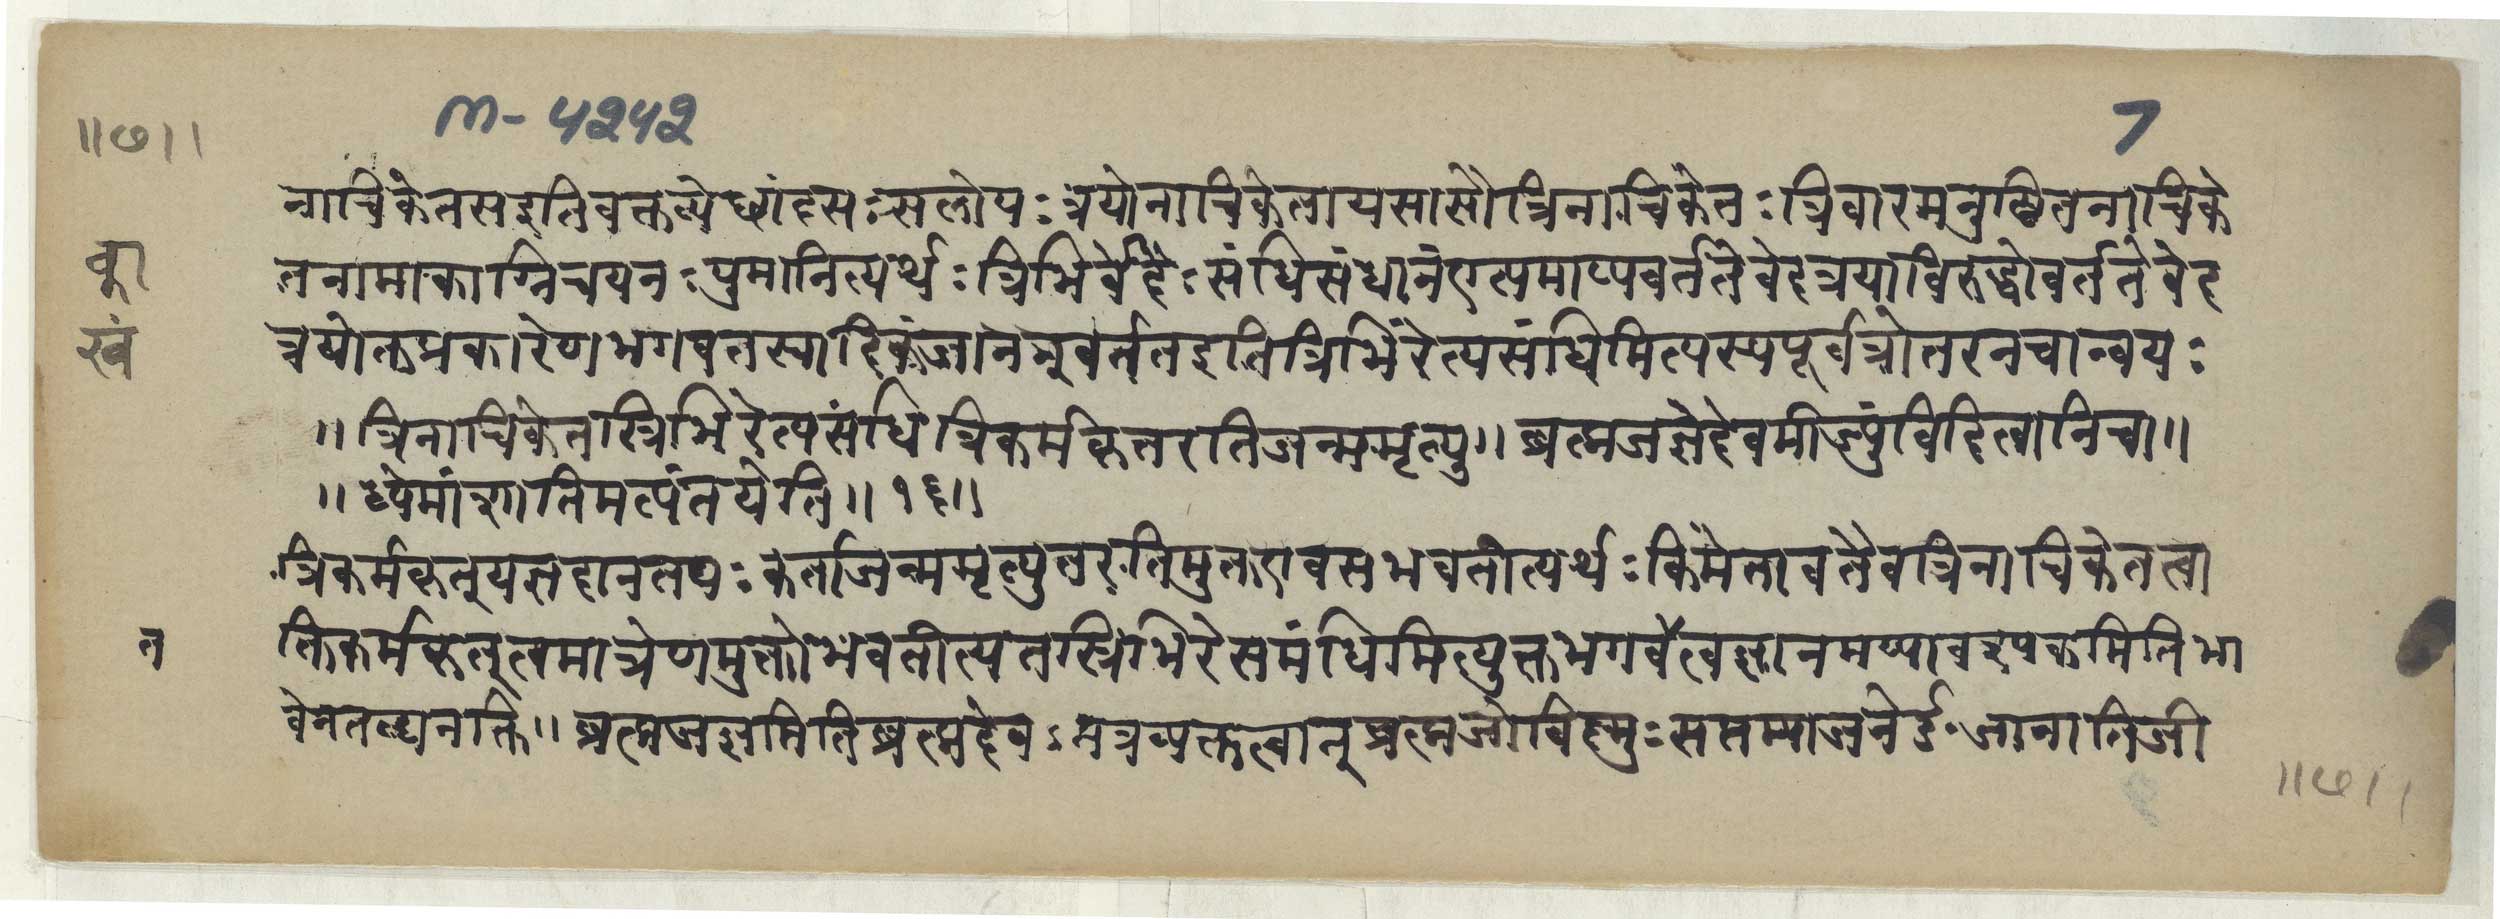 ॥७॥
m-५२५२
7
नाचिकेतसइतिवक्तव्येछांदसःसलोपः त्रयोनाचिकेतायस्यासौत्रिनाचिकेतः त्रिवारमनुष्ठितनाचिके
का
तनामाकाग्निचयनः पुमानित्यर्थः त्रिभिर्वेदैः संधिसंधानंएत्यप्राप्यवर्ततेवेदत्रयाविरुद्धोवर्ततेवेद
खं
त्रयोक्तप्रकारेणभगवतस्वादिकंजाननुवर्ततइतित्रिभिरेत्यसंधिमित्यस्यपूर्वत्रोतरत्रचान्वयः
॥ त्रिनाचिकेतस्त्रिभिरेत्यसंधि त्रिकर्मकृत्तरतिजन्ममृत्यु॥ ब्रह्मजज्ञंदेवमीड्यंविदित्वानिचा॥
॥ य्येमांशातिमत्यंतयेति॥ १६॥
त्रिकर्मकृत्यज्ञदानतपः कर्ताजन्ममृत्युतरतिमुक्तएवसभवतीत्यर्थः किमेतावतैवत्रिनाचिकेतत्वा
त
त्रिकर्मकृत्त्वमात्रेणमुक्तोभवतीत्यतस्त्रिभिरेत्यसंधिमित्युक्तभगवत्वज्ञानमप्यावश्यकमितिभा
वेनतद्व्यनक्ति॥ ब्रह्मजज्ञमितिब्रह्मदेवः मत्रव्यक्तत्वात् ब्रह्मजोविष्णुः सप्तम्याजनेर्डः जानातिजी
॥७॥